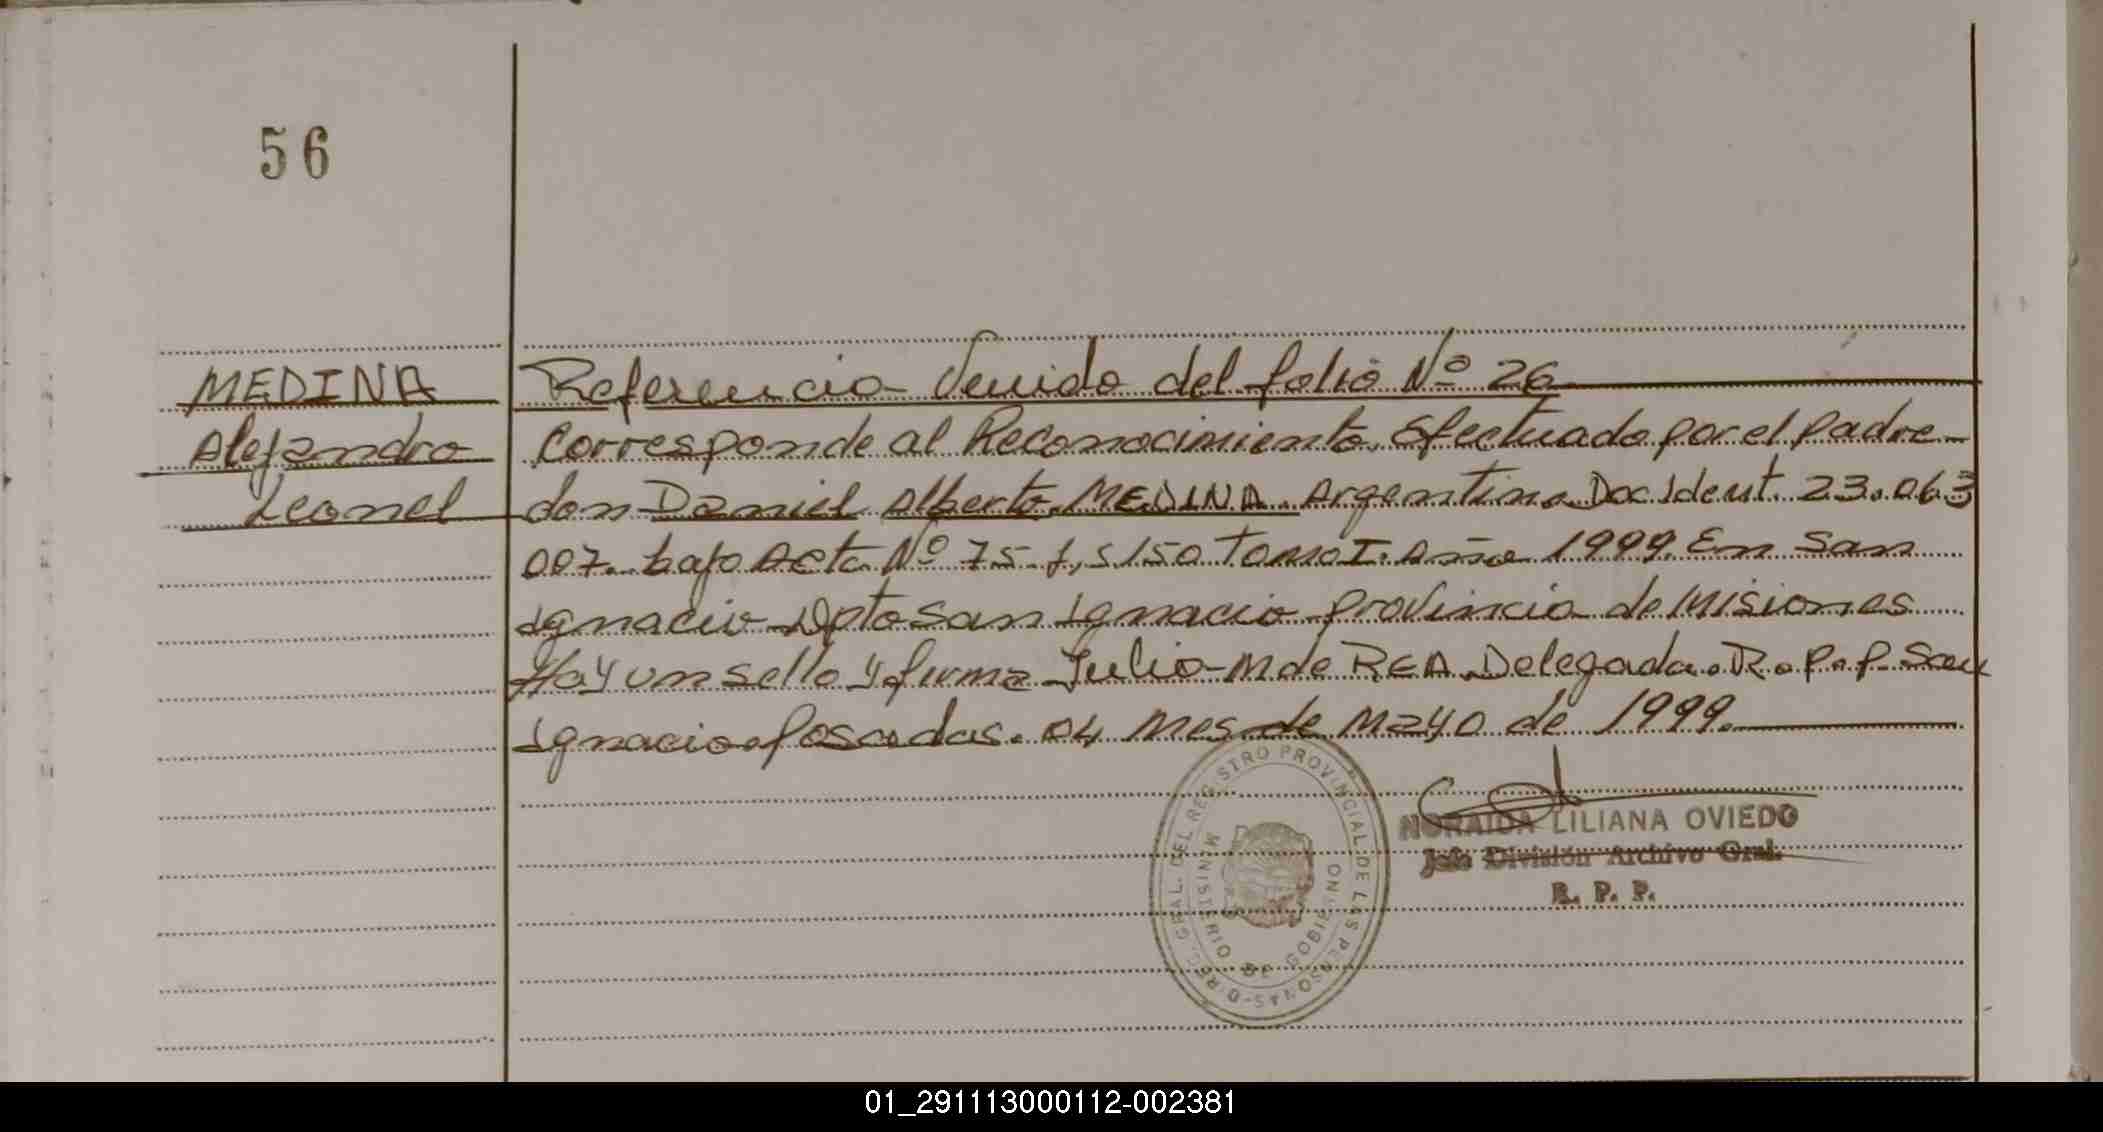 56
MEDINA
Alejandro
Leonel
Referencia Venida del folio Nº 26
Corresponde al Reconocimiento. Efectuado por el Padre
don Daniel Alberto MEDINA. Argentino Doc Ident. 23.063
007. bajo Acta Nº 75 f, 5150 Tomo I. Año 1999. En San
Ignacio Dpto San Ignacio Provincia de Misiones
Hay un sello y firma Julio M de REA Delegada. R. P. P. San
Ignacio Posadas. 04 Mes de Mayo de 1999.
NORAIDA LILIANA OVIEDO
Jefe División Archivo Gral.
R. P. P.
DIREC. GRAL. DEL REGISTRO PROVINCIAL DE LAS PERSONAS
MINISTERIO DE GOBIERNO
01_291113000112-002381